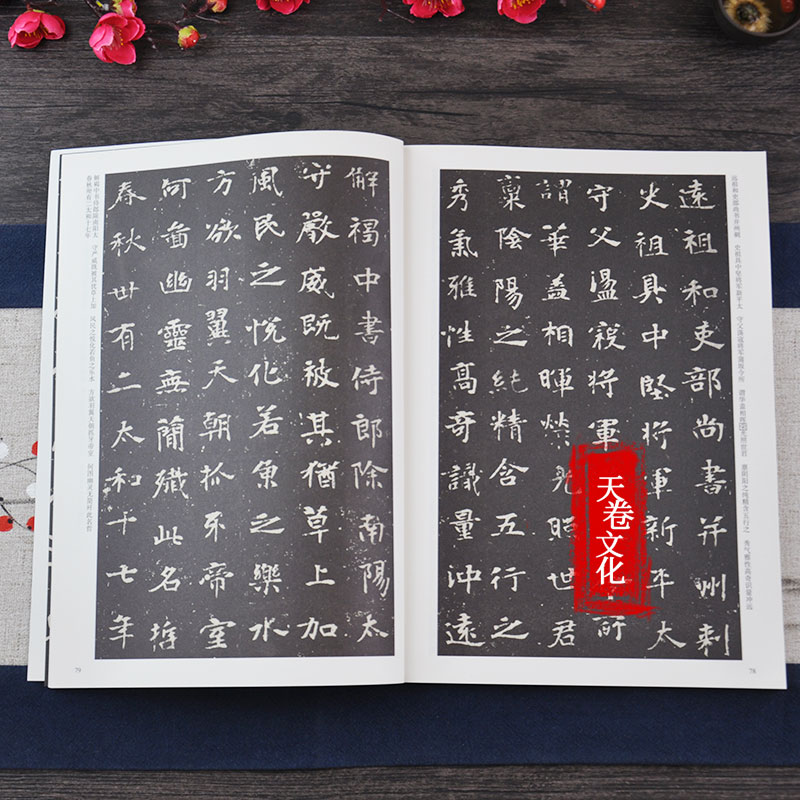 遠祖和吏部尚書并州刺
史祖具中堅將軍新平太
守父盪寇將軍所
謂華盖相暉榮光照世君
稟陰陽之純精含五行之
秀氣雅性高奇識量沖遠
天卷文化
78
解褐中書侍郎除南陽太
守嚴威既被其猶草上加
風民之悅化若魚之樂水
方欲羽翼天朝抓牙帝室
何啚幽靈無簡殲此名哲
春秋卌有二太和十七年
79